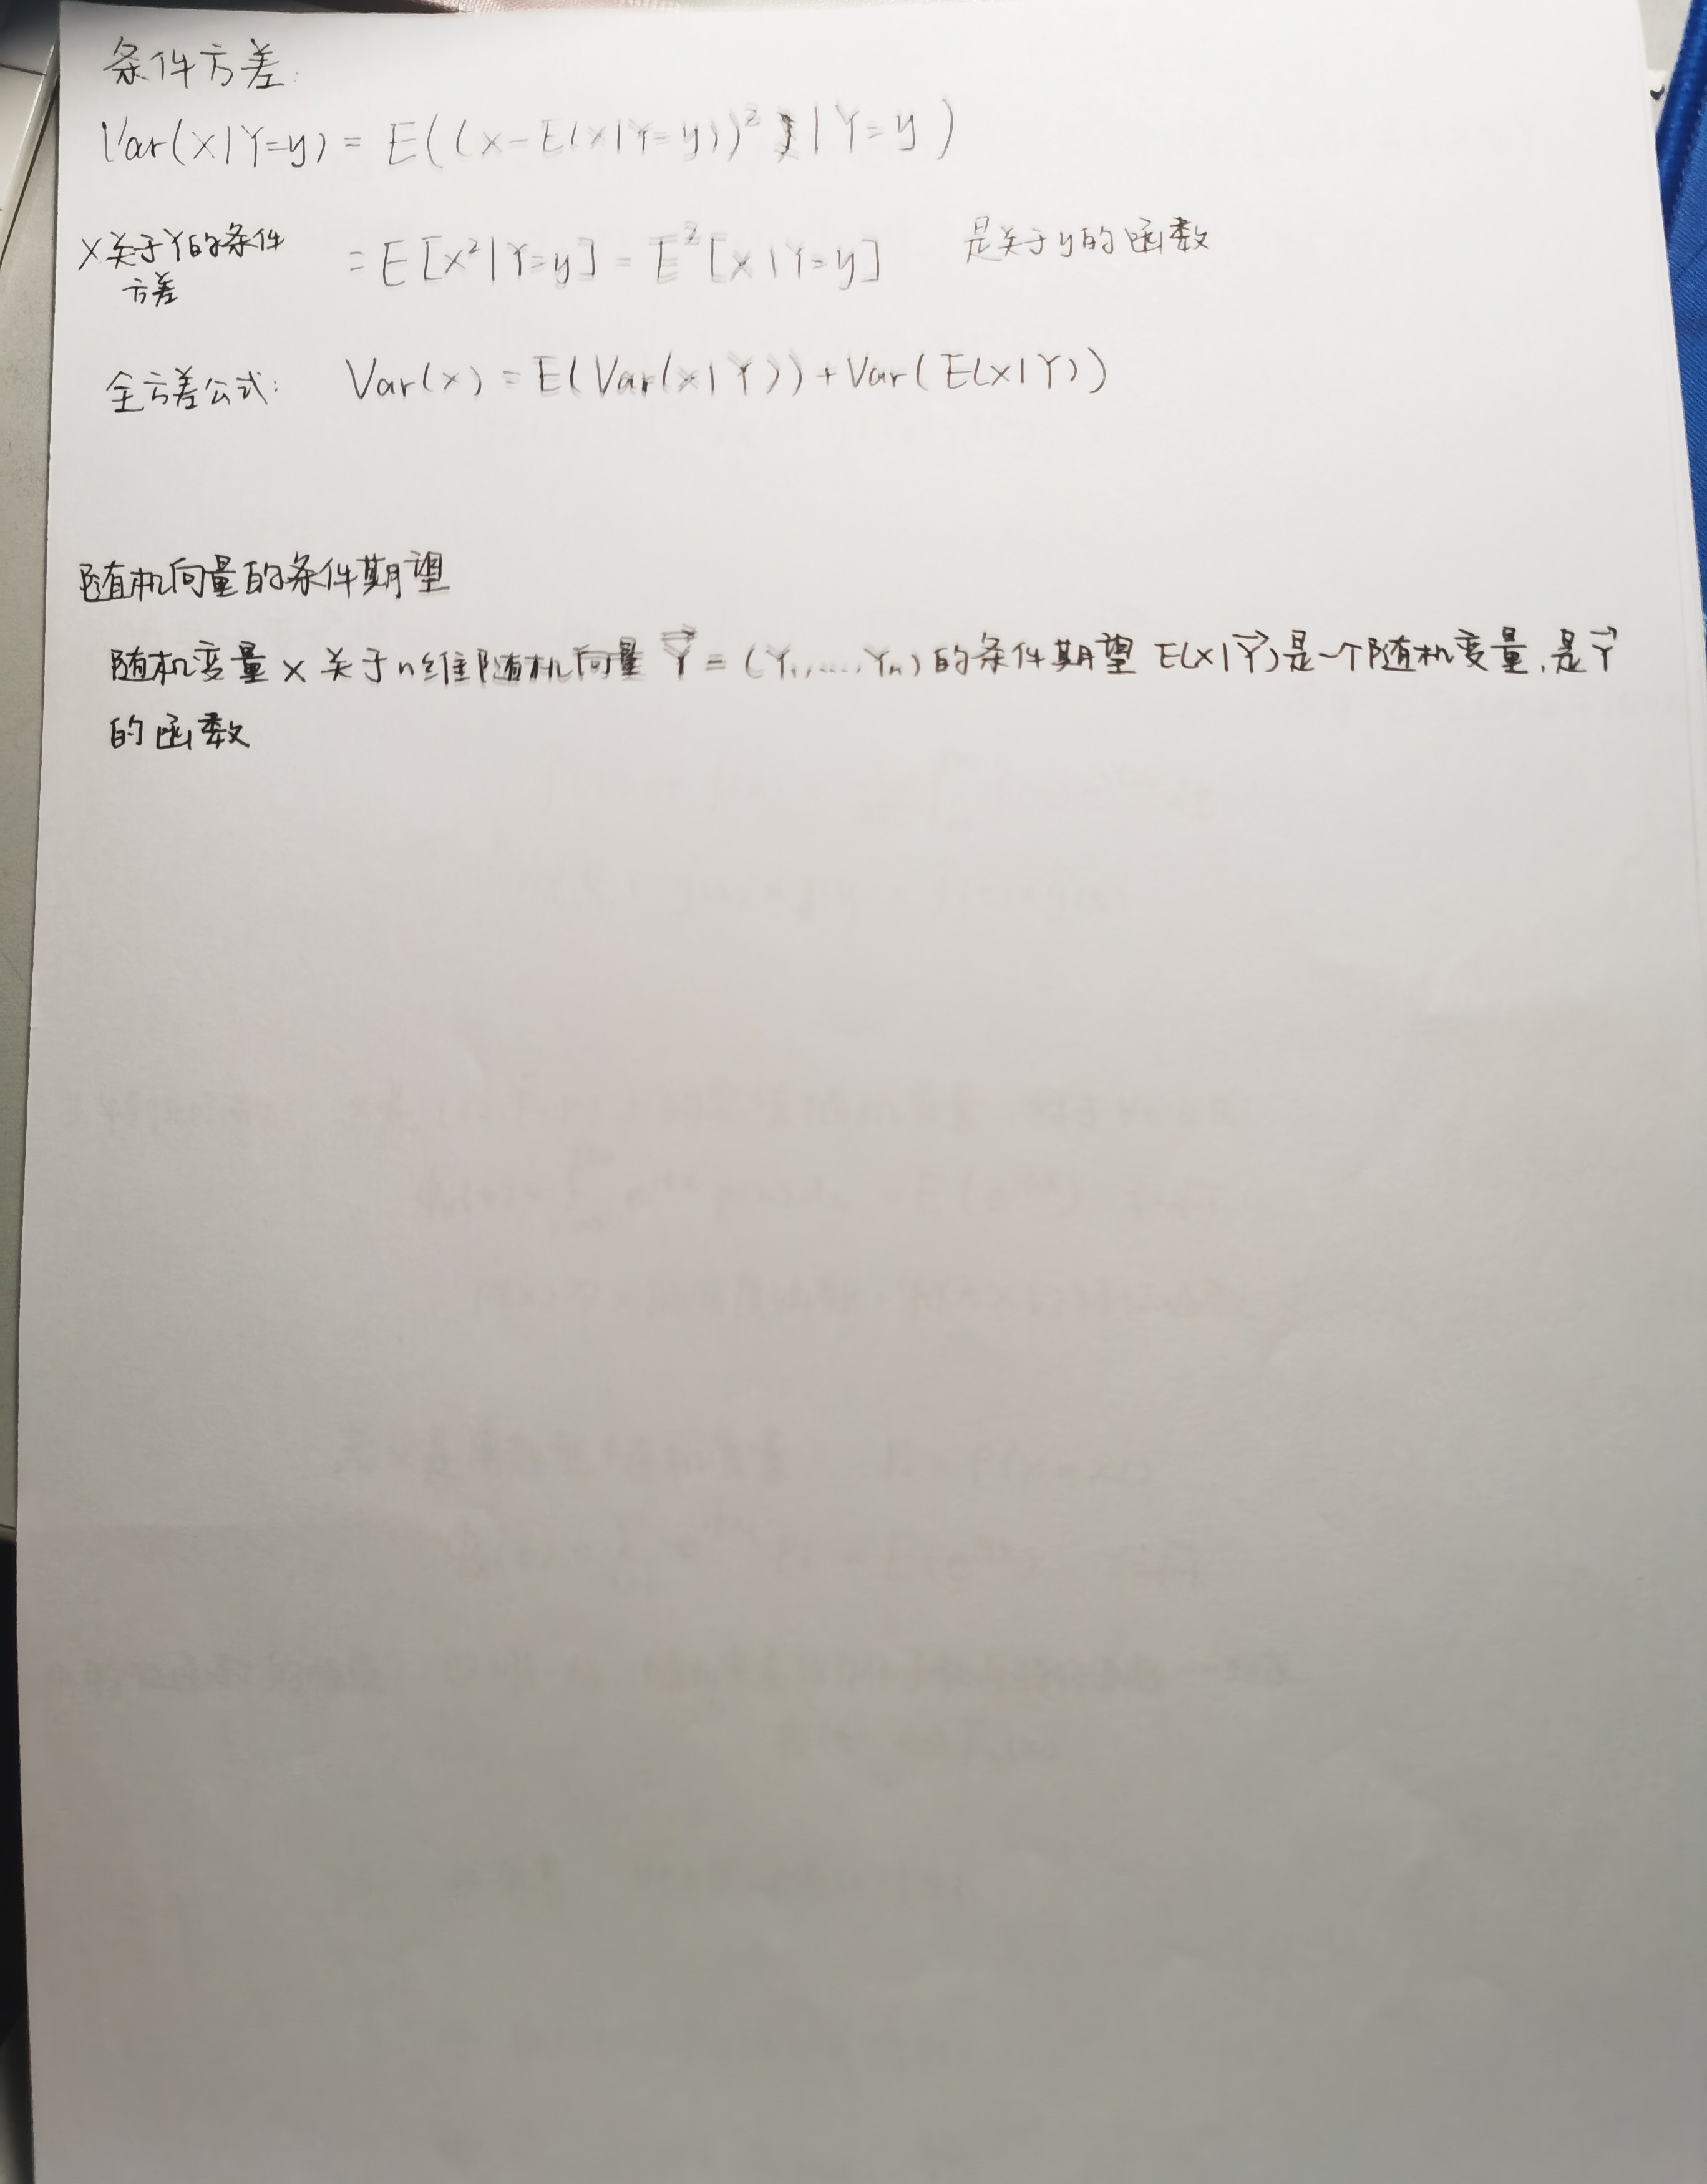 条件方差:
Var(X|Y=y) = E((X-E(X|Y=y))²|Y=y)
X关于Y的条件
方差
= E[X²|Y=y] - E²[X|Y=y] 是关于y的函数
全方差公式: Var(X) = E(Var(X|Y)) + Var(E(X|Y))
随机向量的条件期望
随机变量X关于n维随机向量 Y⃗ = (Y₁,...,Yₙ)的条件期望 E(X|Y⃗)是一个随机变量,是Y⃗
的函数